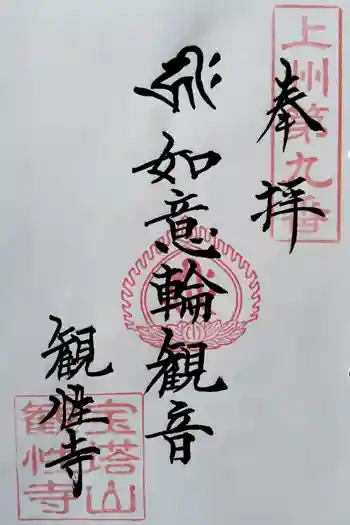 上州第九番
奉拝
如意輪観音
観性寺
宝塔山
観性寺